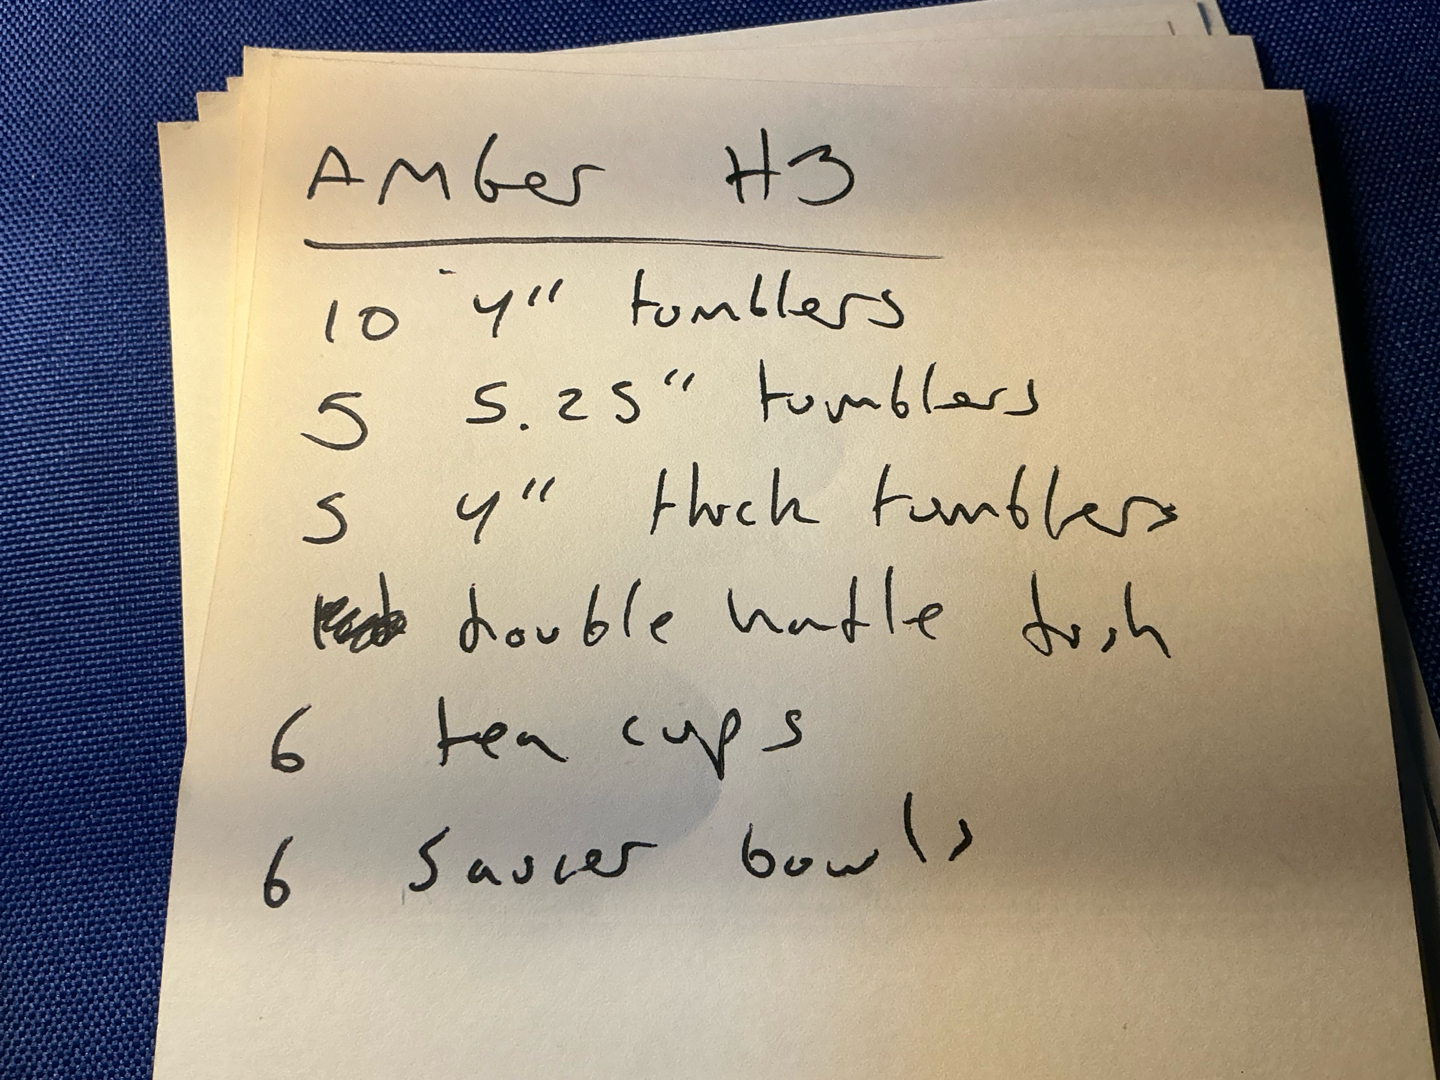 AMber H3
10 4" tumblers
5 5.25" tumblers
5 4" thick tumblers
double handle dish
6 tea cups
6 saucer bowls